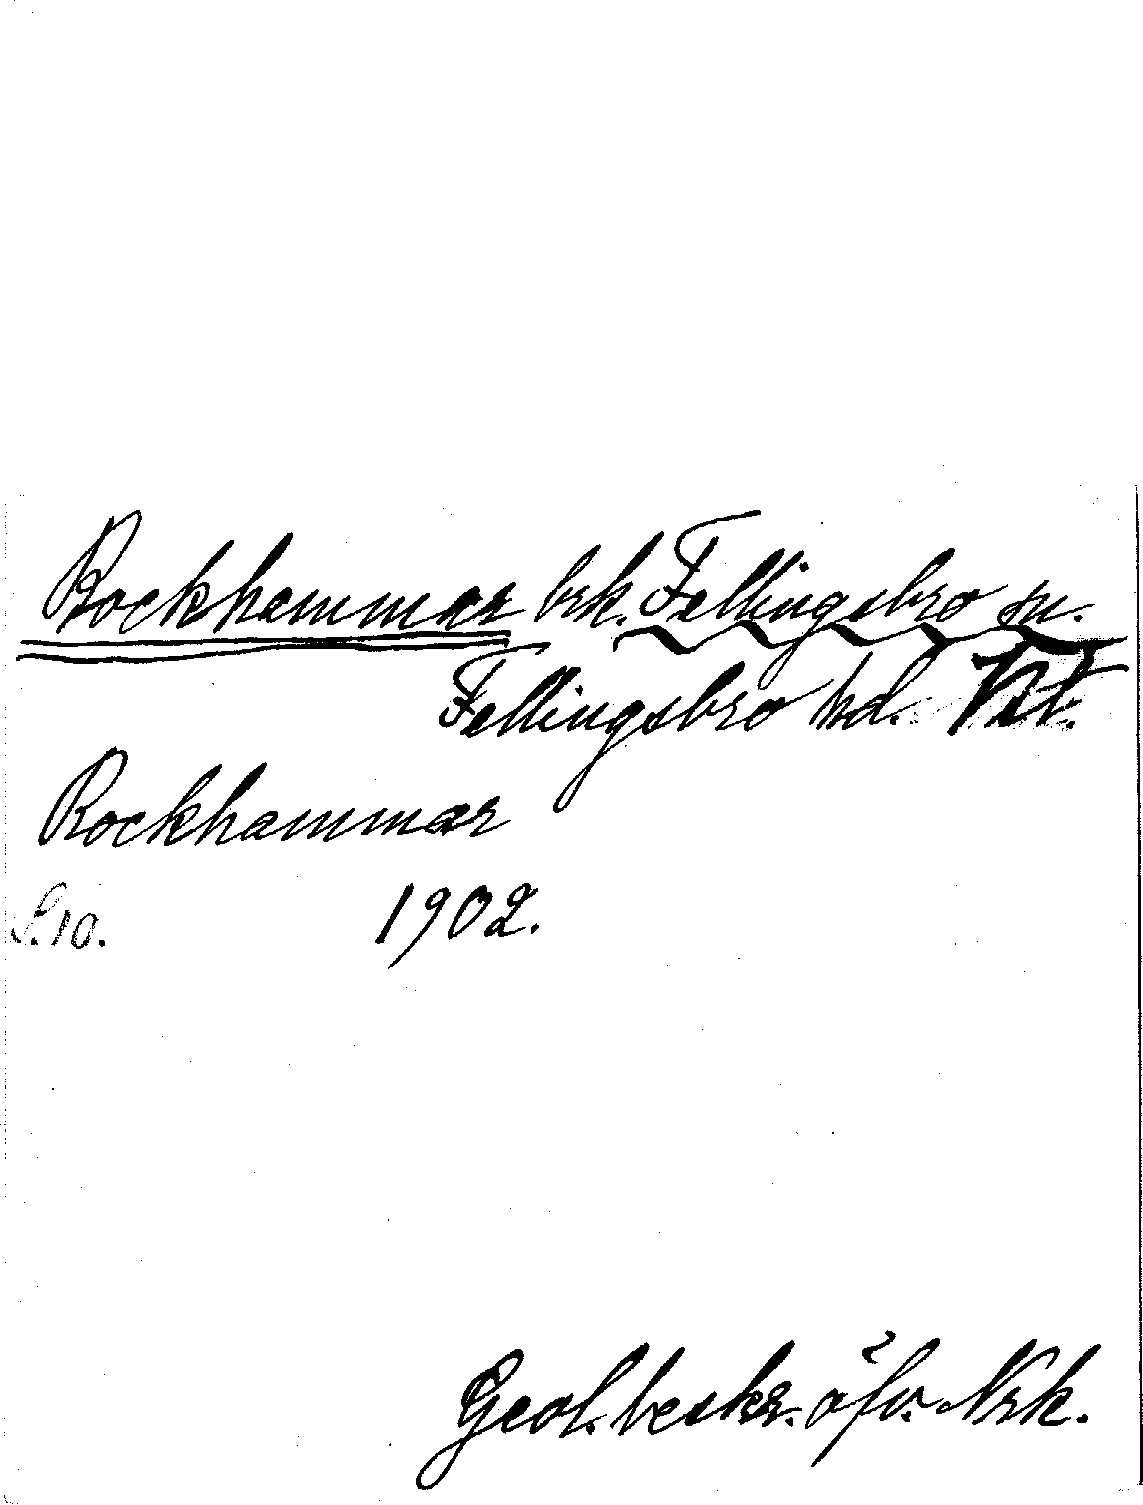 Rockhammar brk. Fellingsbro sn.
Fellingsbro hd. Vstl.
Rockhammar
S.10. 1902.
Geol. beskr. öfv. Nrk.